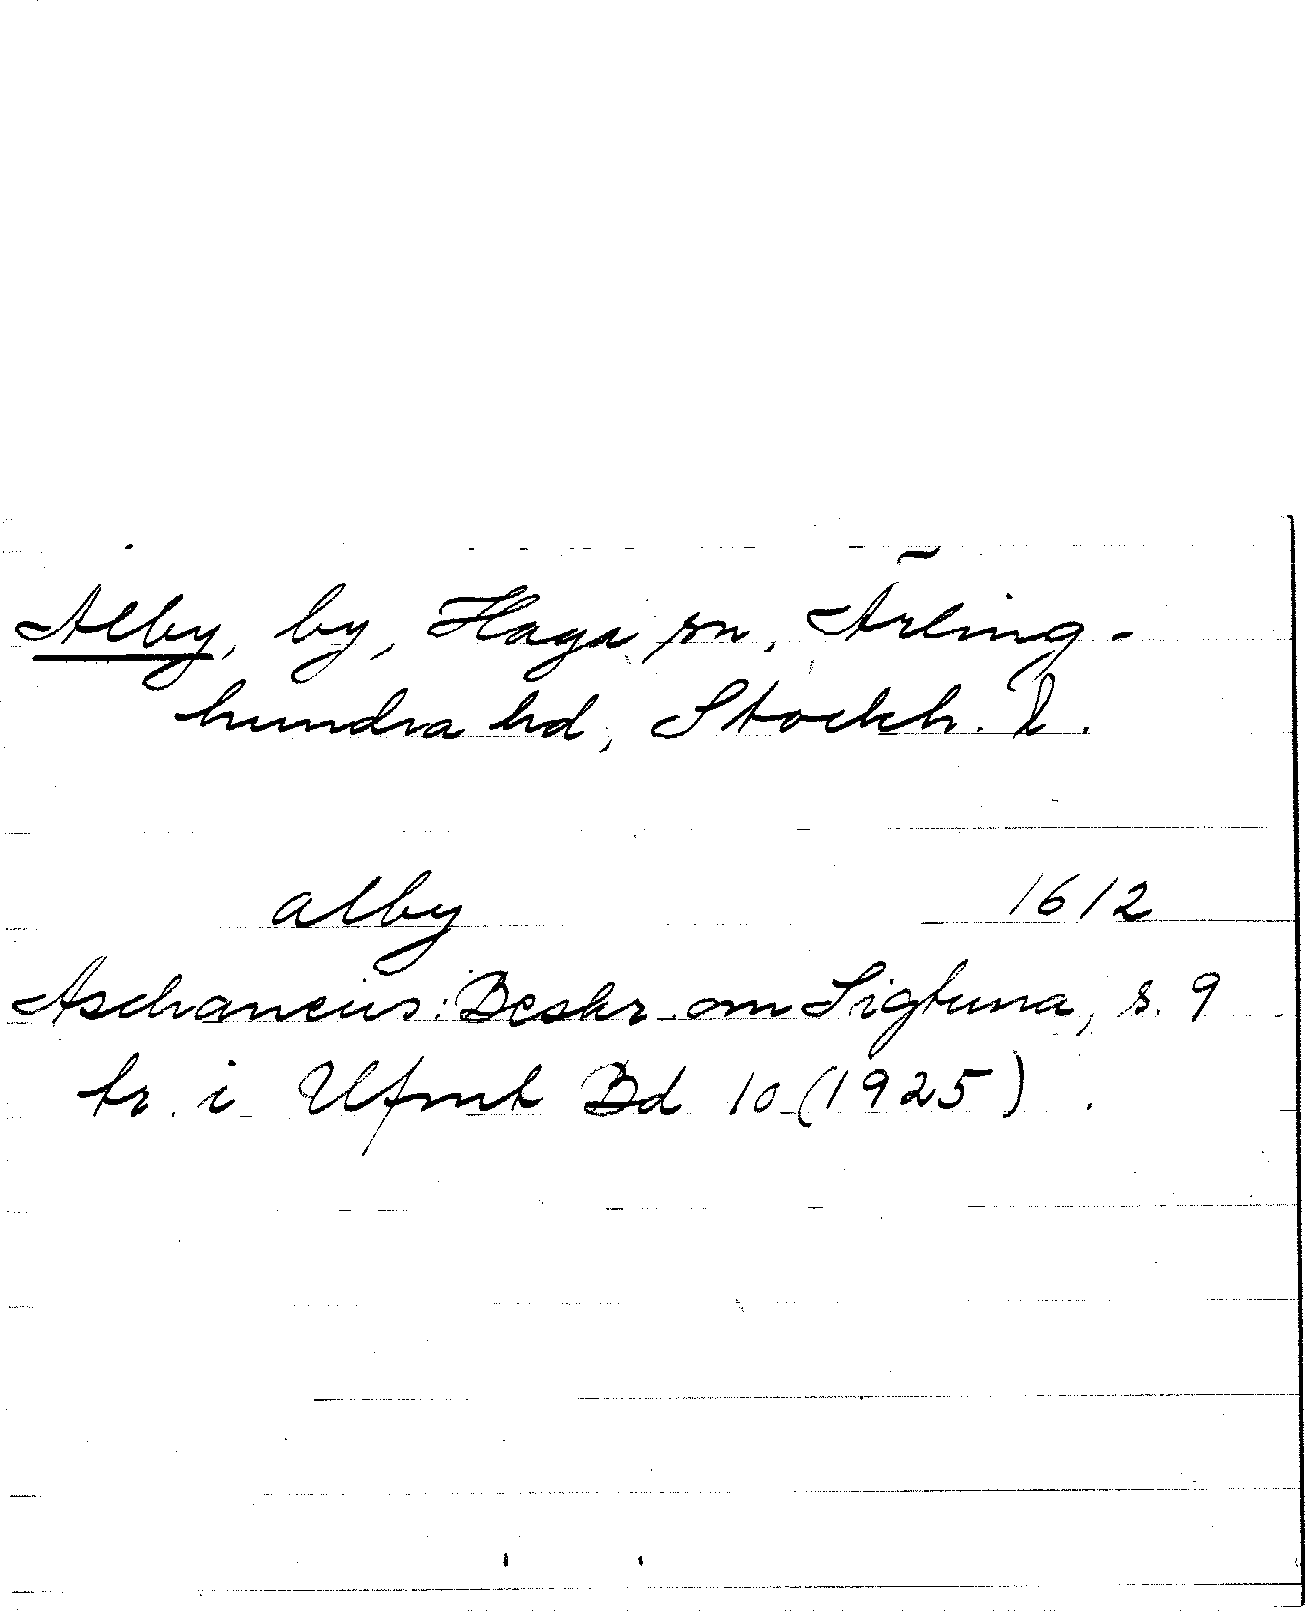 Alby, by, Haga sn, Ärling-
hundra hd, Stockh. l.
alby 1612
Aschaneus: Beskr. om Sigtuna, s. 9
tr. i Ufmt Bd 10 (1925).